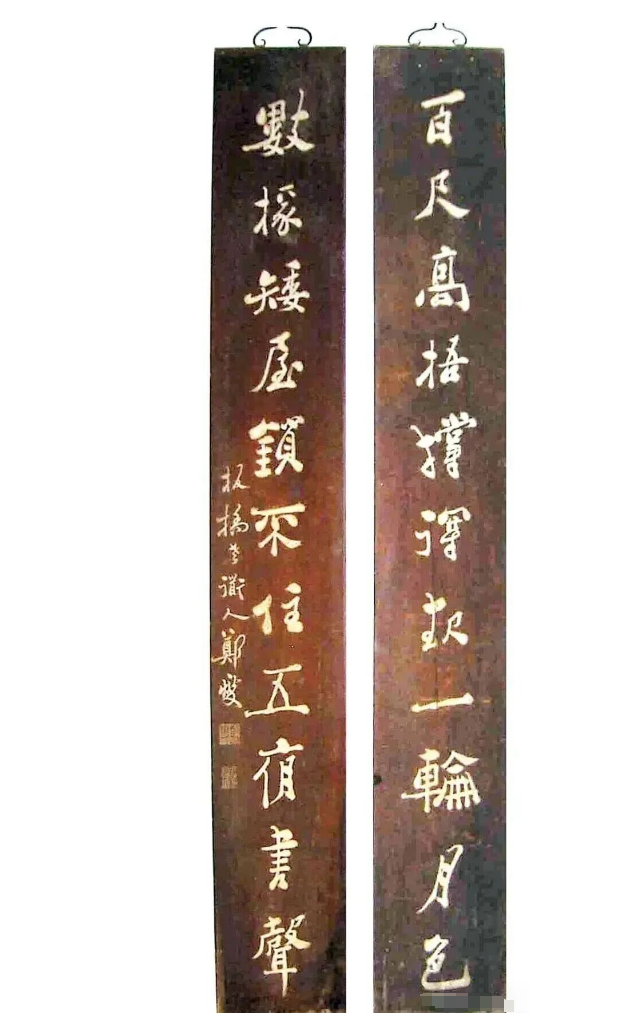 百尺高梧撑得起一輪月色
數椽矮屋鎖不住五夜書聲
板橋老人鄭燮